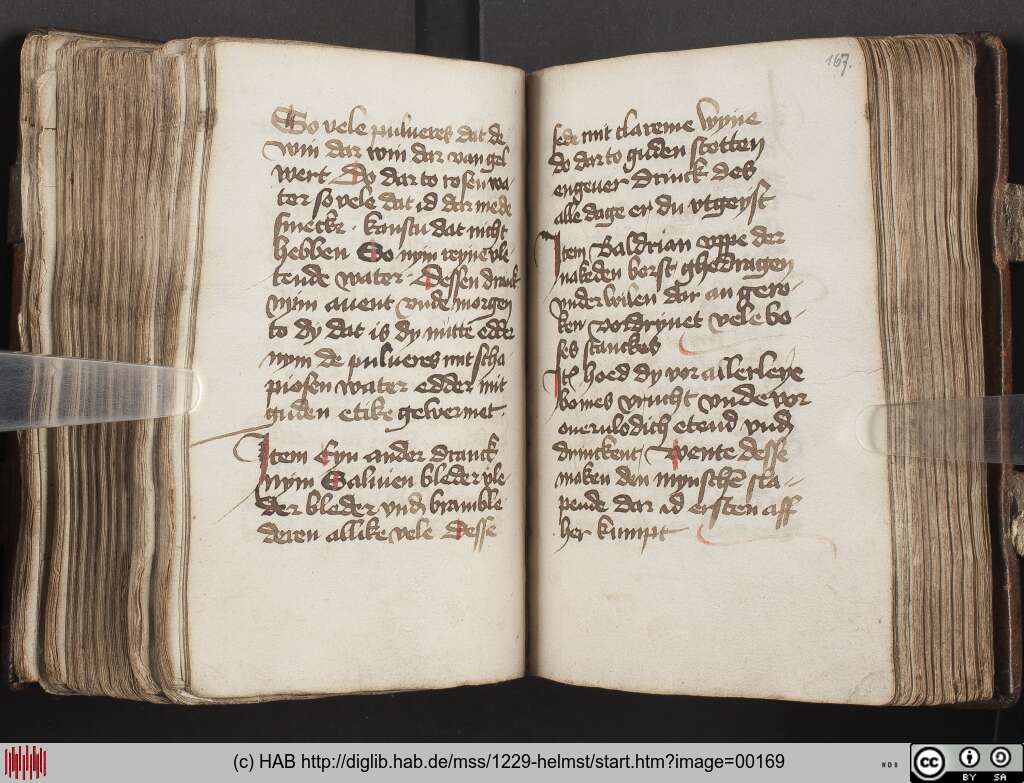 So vele pulueres dat de
win dar win dar van gel
wert Do dar to rosen wa
ter so vele dat id dar mede
smecke · kanstu dat nicht
hebben So nym reyne vle
tende water · Dessen dranck
nym auent vnde morgen
to dy dat is dy nutte edder
nym de pulueres mit scha
piosen water edder mit
guden etike gewermet ·
Item Eyn ander dranck
Nym Saluien bleder vle
der bleder vnd bramble
deren allike vele Desse
sede mit clareme wyne
do dar to guden stotten
engeuer Drinck des
alle dage er du vtgeyst
Item Baldrian vppe der
nakeden borst ghedragen
vnderwilen dar an gero-
ken vordryuet vele bo-
ses stanckes
Itē hoed dy vor allerleye
bomes vrucht vnde vor
ouerulodich etend vnd
drinckent Wente desse
maken den mynschē sta-
pende dar id ersten aff
her kumpt
167.
(c) HAB http://diglib.hab.de/mss/1229-helmst/start.htm?image=00169
WDB
cc
BY SA